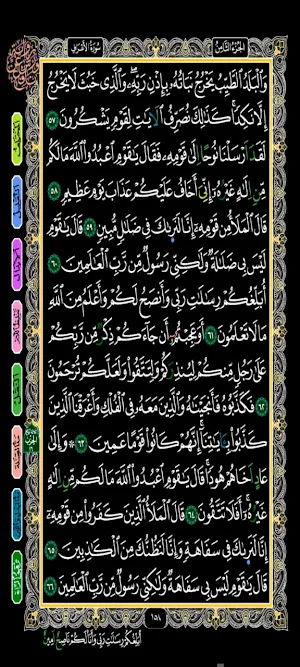 الجزء الثامن
سورة الأعراف
وَالْبَلَدُ الطَّيِّبُ يَخْرُجُ نَبَاتُهُ بِإِذْنِ رَبِّهِ وَالَّذِي خَبُثَ لَا يَخْرُجُ
إِلَّا نَكِدًا كَذَٰلِكَ نُصَرِّفُ الْآيَٰتِ لِقَوْمٍ يَشْكُرُونَ ٥٧
لَقَدَ ارْسَلْنَا نُوحًا اِلَىٰ قَوْمِهِ فَقَالَ يَٰقَوْمِ اعْبُدُوا اللَّهَ مَا لَكُم
مِّنِ اِلَٰهٍ غَيْرُهُ إِنِّيَ أَخَافُ عَلَيْكُمْ عَذَابَ يَوْمٍ عَظِيمٍ ٥٨
قَالَ الْمَلَأُ مِن قَوْمِهِ إِنَّا لَنَرَىٰكَ فِي ضَلَٰلٍ مُّبِينٍ ٥٩ قَالَ يَٰقَوْمِ
لَيْسَ بِي ضَلَٰلَةٌ وَلَٰكِنِّي رَسُولٌ مِّن رَّبِّ الْعَٰلَمِينَ ٦٠
أُبَلِّغُكُمْ رِسَٰلَٰتِ رَبِّي وَأَنصَحُ لَكُمْ وَأَعْلَمُ مِنَ اللَّهِ
مَا لَا تَعْلَمُونَ ٦١ أَوَعَجِبْتُمُ أَن جَاءَكُمْ ذِكْرٌ مِّن رَّبِّكُمْ
عَلَىٰ رَجُلٍ مِّنكُمْ لِيُنذِرَكُمْ وَلِتَتَّقُوا وَلَعَلَّكُمْ تُرْحَمُونَ
٦٢ فَكَذَّبُوهُ فَأَنجَيْنَٰهُ وَالَّذِينَ مَعَهُ فِي الْفُلْكِ وَأَغْرَقْنَا الَّذِينَ
كَذَّبُوا بِـَٔايَٰتِنَا إِنَّهُمْ كَانُوا قَوْمًا عَمِينَ ٦٣ ۞ وَإِلَىٰ
عَادٍ اَخَاهُمْ هُودًا قَالَ يَٰقَوْمِ اعْبُدُوا اللَّهَ مَا لَكُم مِّنِ اِلَٰهٍ
غَيْرُهُ أَفَلَا تَتَّقُونَ ٦٤ قَالَ الْمَلَأُ الَّذِينَ كَفَرُوا مِن قَوْمِهِ
إِنَّا لَنَرَىٰكَ فِي سَفَاهَةٍ وَإِنَّا لَنَظُنُّكَ مِنَ الْكَٰذِبِينَ ٦٥
قَالَ يَٰقَوْمِ لَيْسَ بِي سَفَاهَةٌ وَلَٰكِنِّي رَسُولٌ مِّن رَّبِّ الْعَٰلَمِينَ ٦٦
أُبَلِّغُكُمْ رِسَٰلَٰتِ رَبِّي وَأَنَا لَكُمْ نَاصِحٌ اَمِينٌ